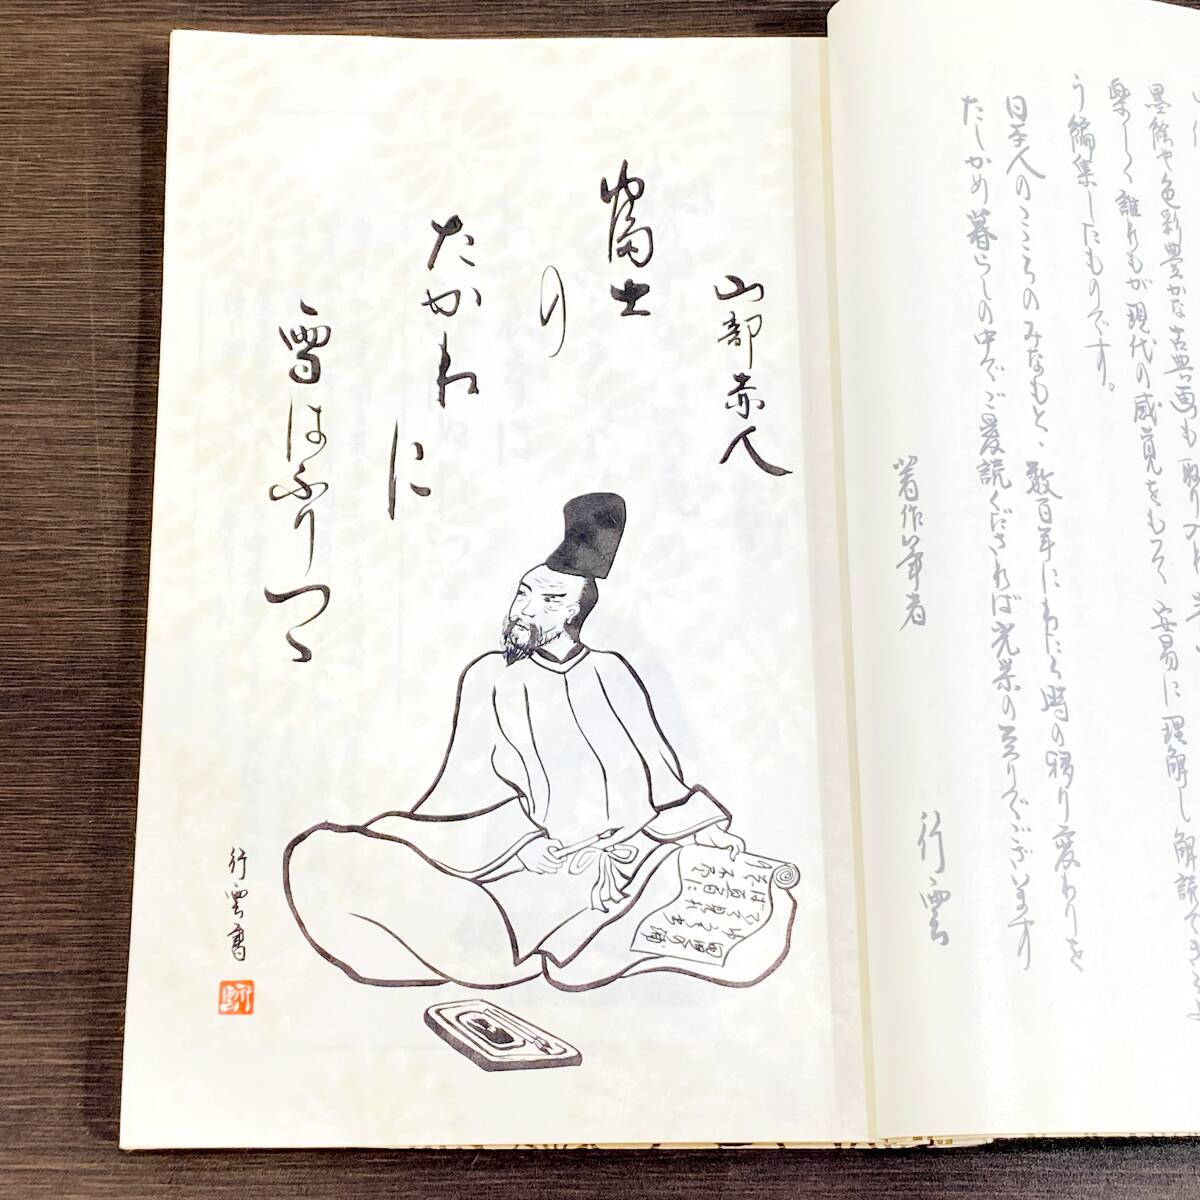 墨絵や色彩豊かな古典画も
楽しく誰もが現代の感覚をもつて安易に理解し解読できるよ
う編集したものです。
日本人のこころのみなもと、数百年にわたる時の移り変わりを
たしかめ暮らしの中でご愛読くだされば光栄の至りでございます
著作筆者
行雲
山部赤人
富士
の
たかねに
雪はふりつゝ
行雲書